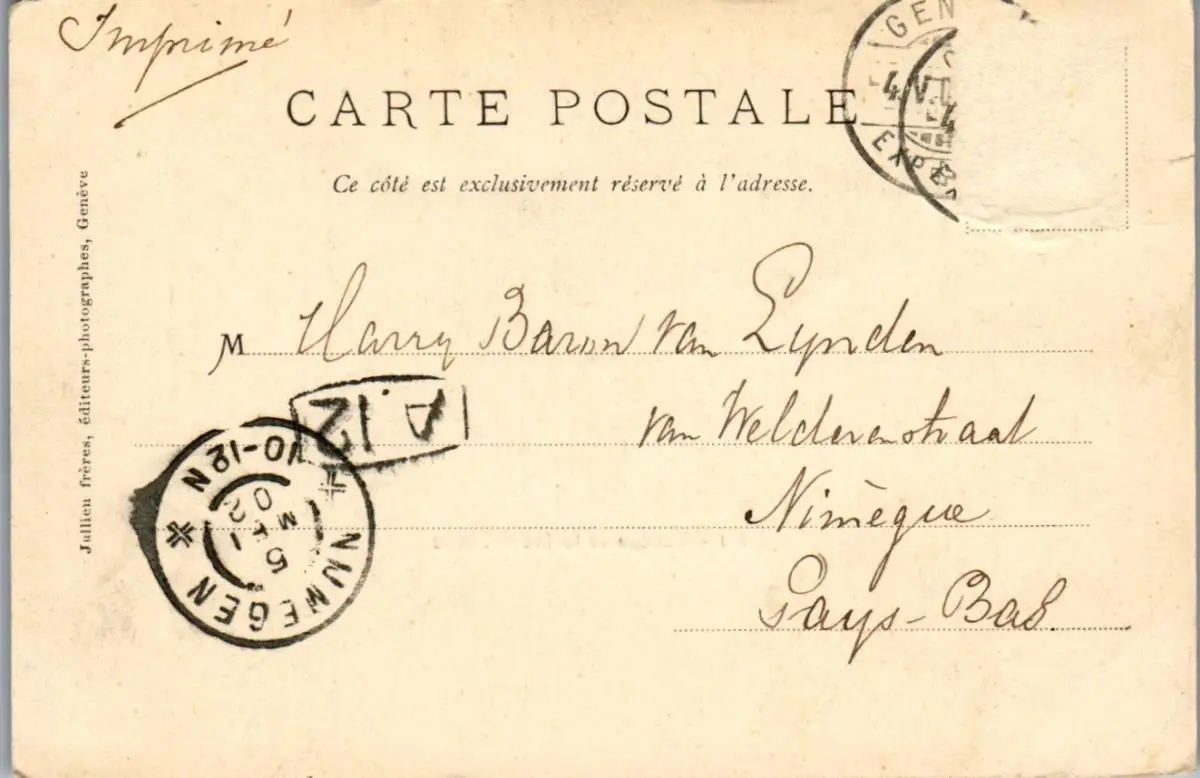 Imprimé
CARTE POSTALE
Ce côté est exclusivement réservé à l'adresse.
GEN
4 VI
EXP
4
Jullien frères, éditeurs-photographes, Genève
M Harry Baron van Lynden
van Welderenstraat
Nimègue
Pays-Bas.
A.12
NIJMEGEN
5
10-12 N
02